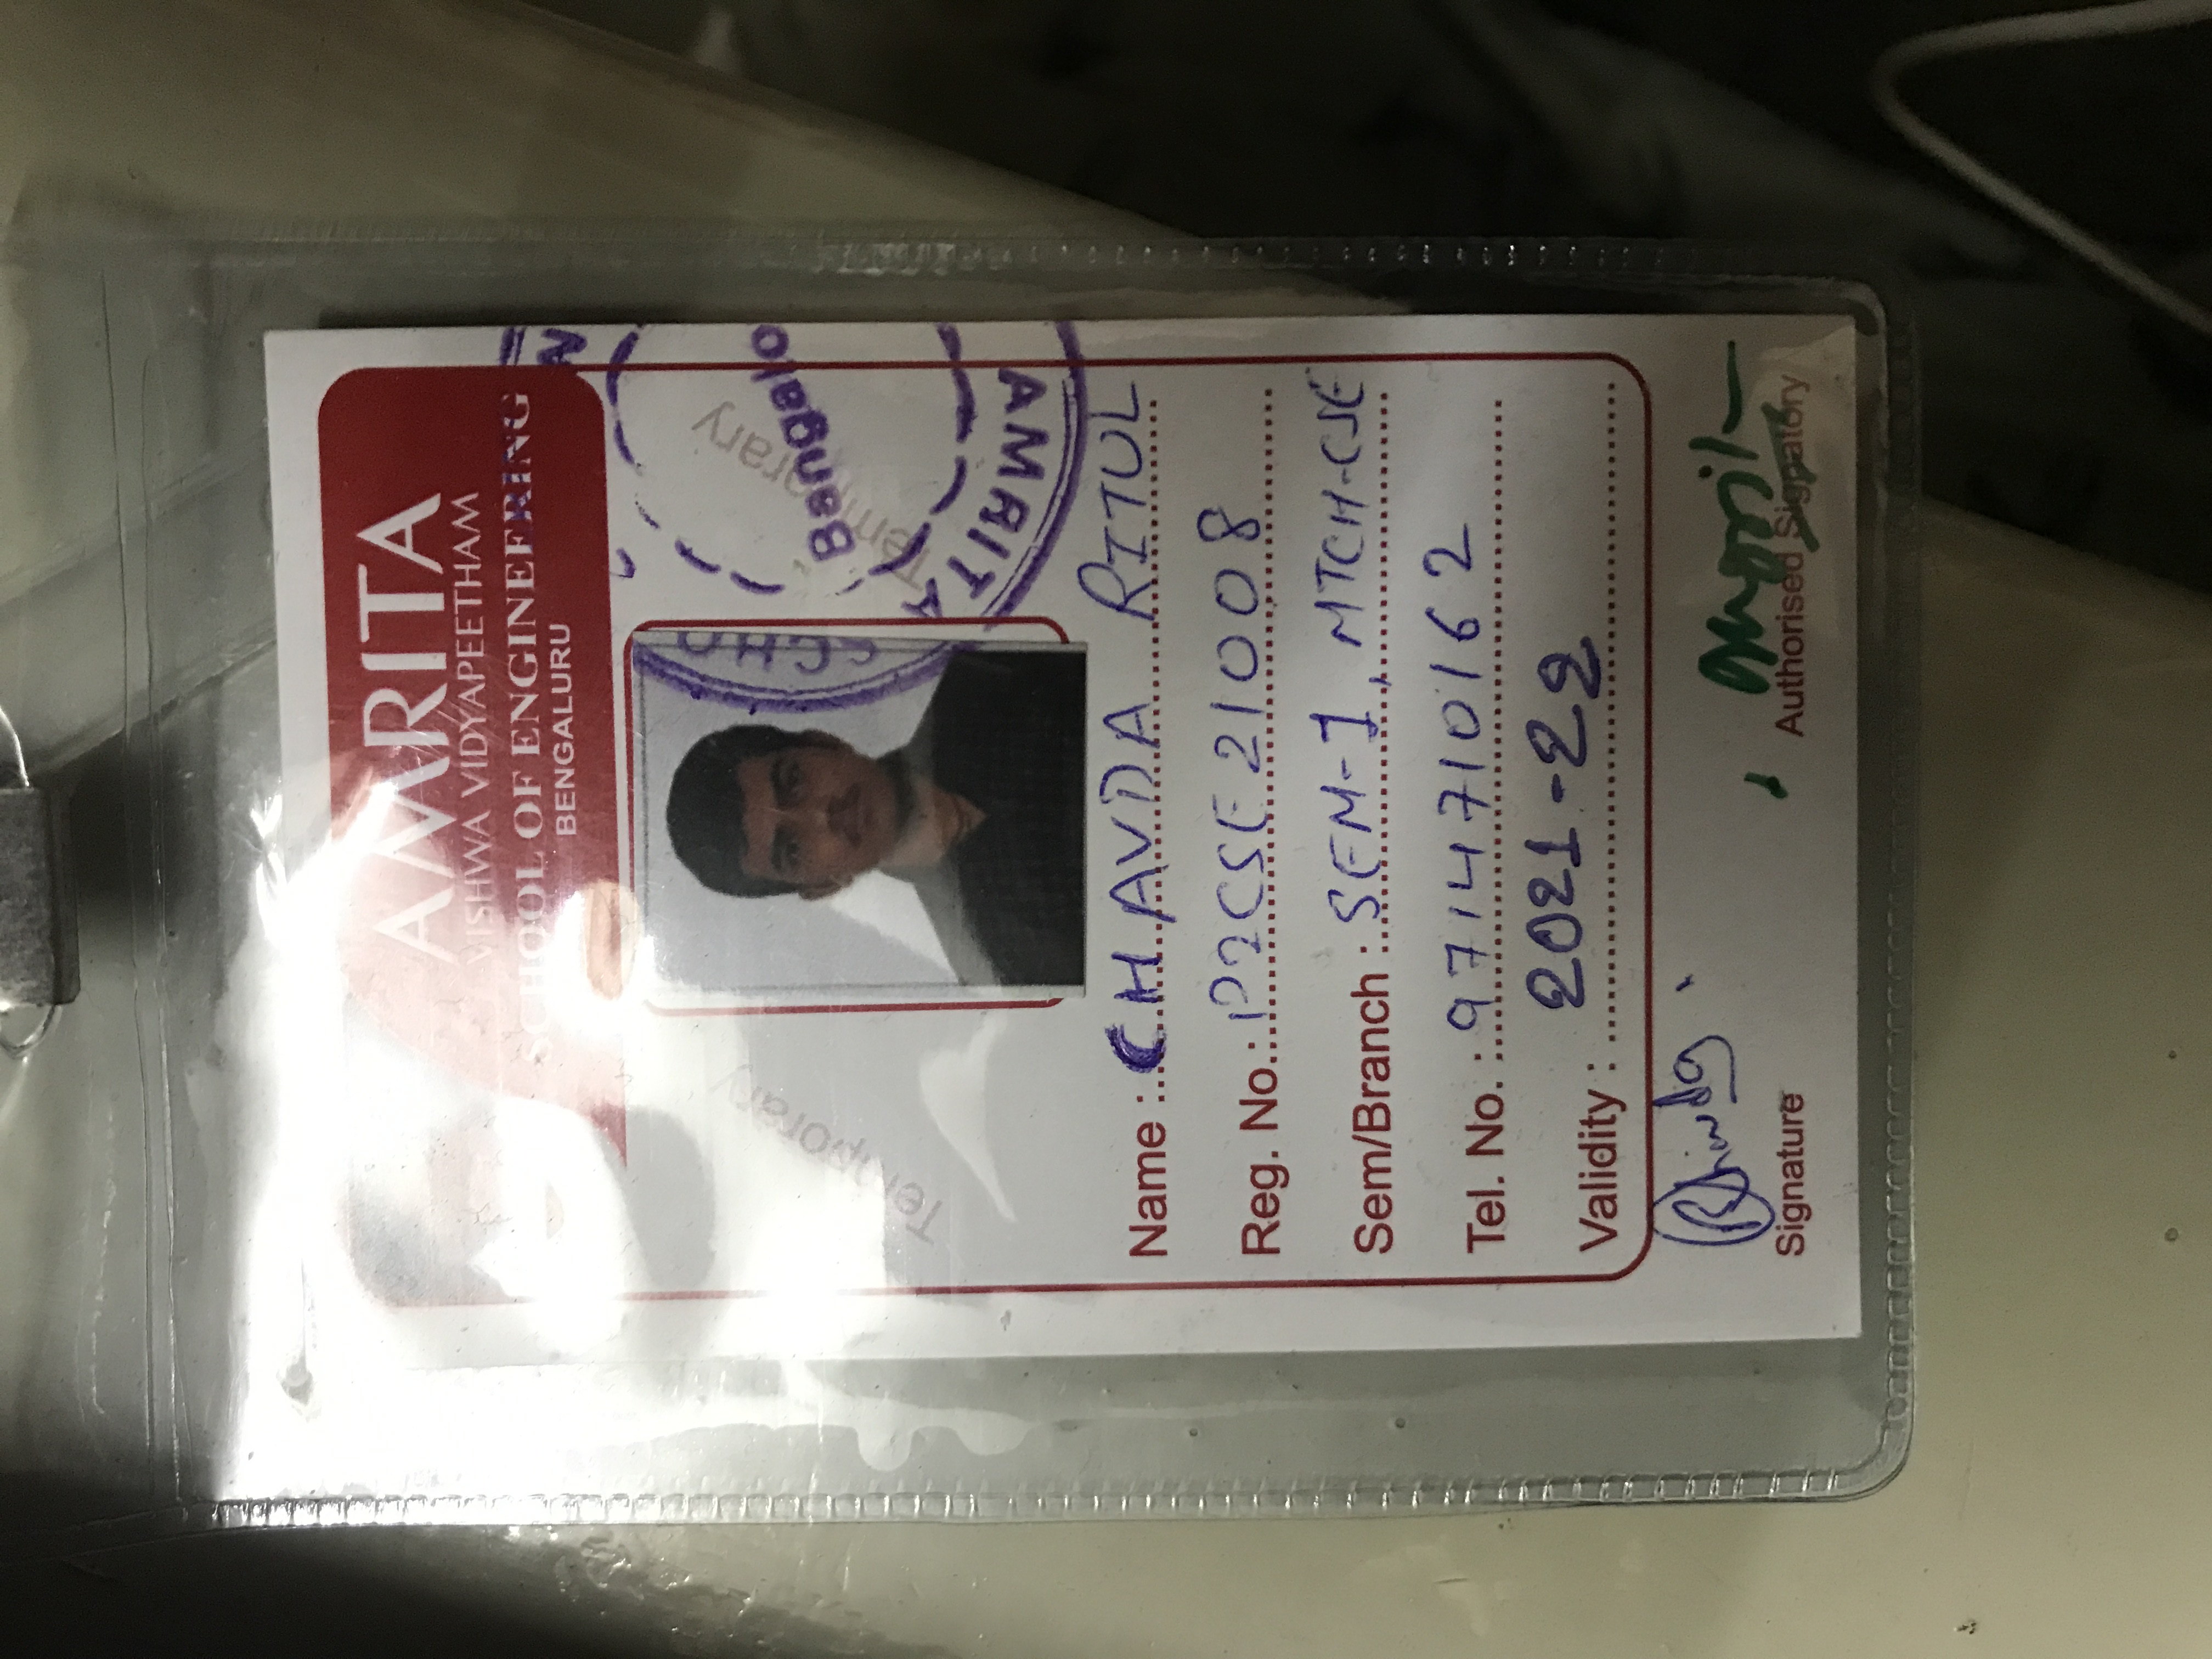 AMRITA
VISHWA VIDYAPEETHAM
SCHOOL OF ENGINEERING
BENGALURU
Temporary
Temporary
Bangalo
AMRITA
Name : CHAVDA RITUL
Reg. No.: P2CSE21008
Sem/Branch : SEM-I, MTCH-CSE
Tel. No. : 9714710162
Validity : 2021-22
Signature
Authorised Signatory